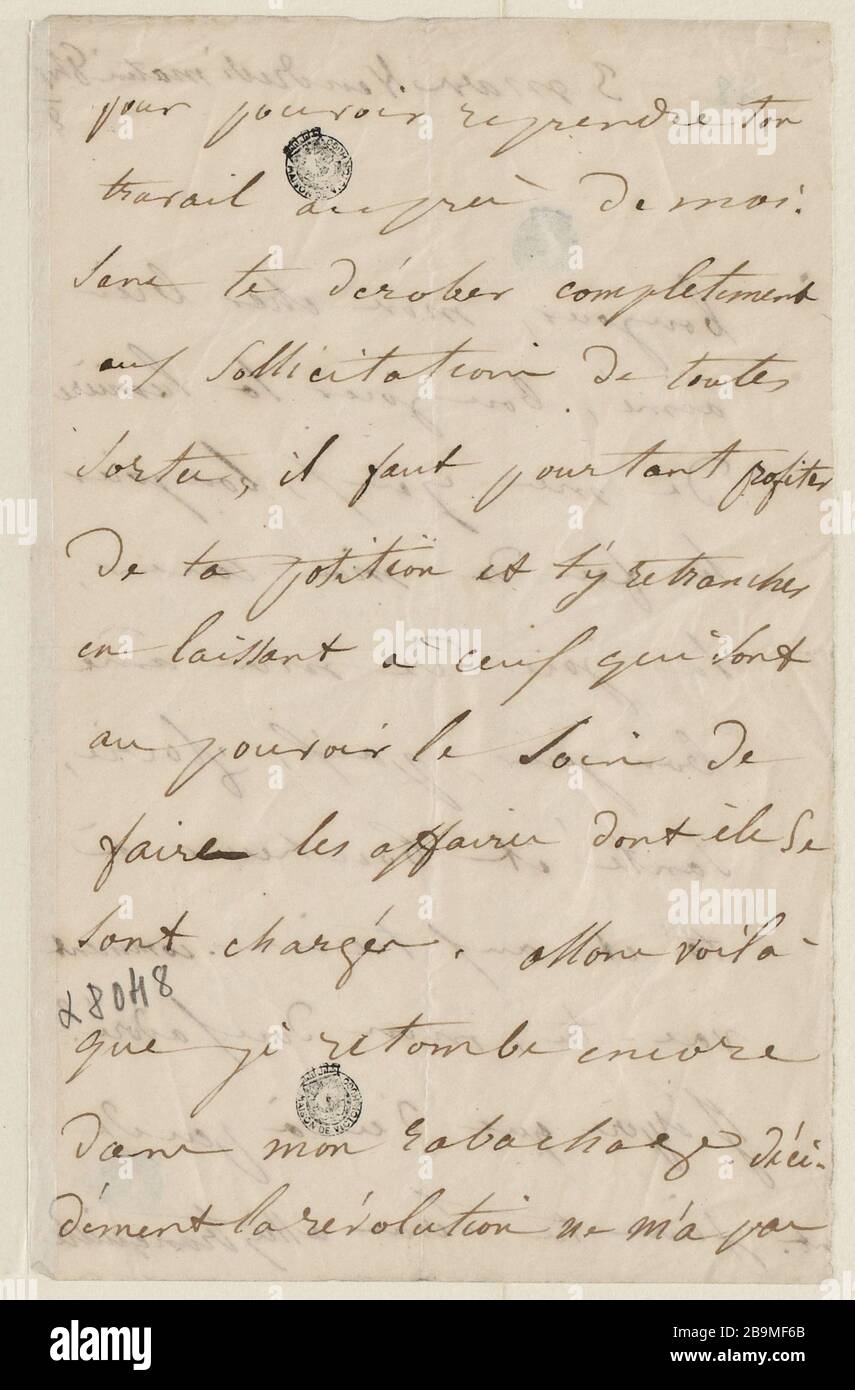 pour pouvoir reprendre ton
travail auprès de moi.
Sans te dérober complètement
aux sollicitations de toutes
sortes, il faut pourtant profiter
de ta position et t'y retrancher
en laissant à ceux qui sont
au pouvoir le soin de
faire les affaires dont ils se
sont chargés. allons voilà
que je retombe encore
dans mon rabachage. déci-
dément la révolution ne m'a pas
α8048
MAISON DE VICTOR HUGO
MAISON DE VICTOR HUGO
alamy
Image ID: 2B9MF6B
www.alamy.com